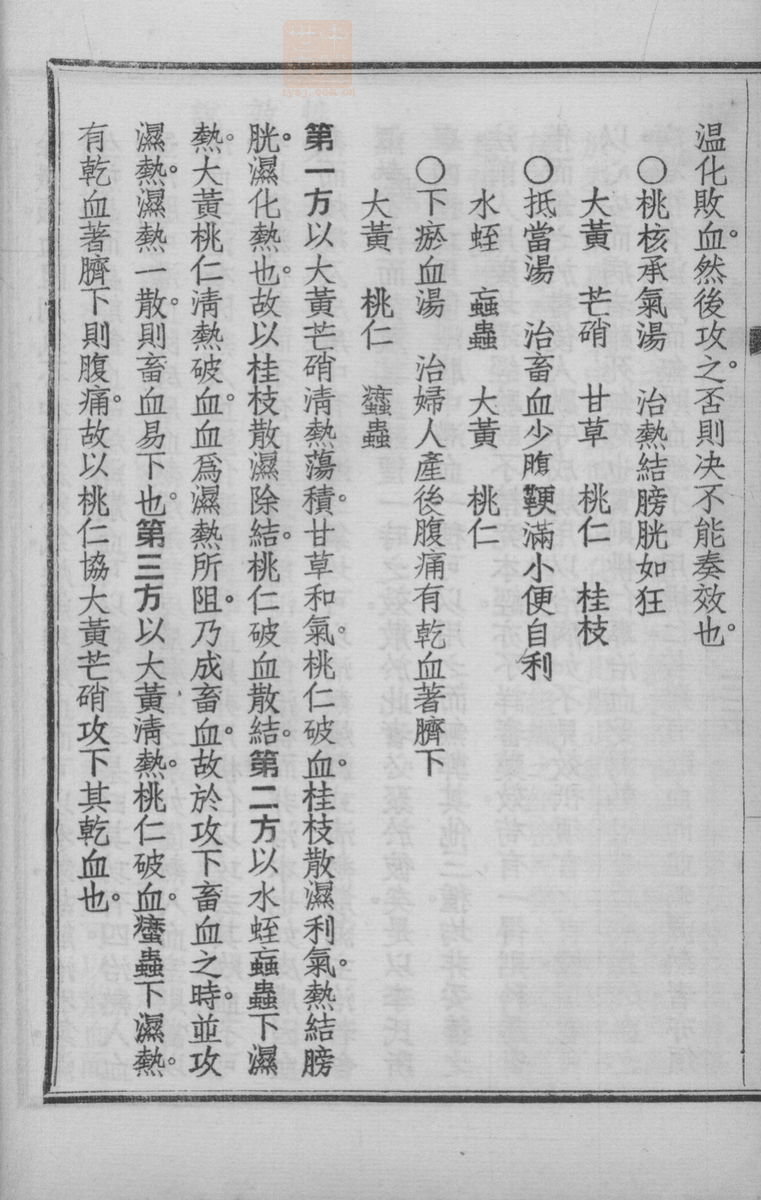 温化敗血。然後攻之。否則决不能奏效也。
○桃核承氣湯　治熱結膀胱如狂
大黃　芒硝　甘草　桃仁　桂枝
○抵當湯　治畜血少腹鞕滿小便自利
水蛭　蝱蟲　大黃　桃仁
○下瘀血湯　治婦人產後腹痛有乾血著臍下
大黃　桃仁　䗪蟲
第一方以大黃芒硝淸熱蕩積。甘草和氣。桃仁破血。桂枝散濕利氣。熱結膀
胱。濕化熱也。故以桂枝散濕除結。桃仁破血散結。第二方以水蛭蝱蟲下濕
熱。大黃桃仁淸熱破血。血爲濕熱所阻。乃成畜血。故於攻下畜血之時。並攻
濕熱。濕熱一散。則畜血易下也。第三方以大黃淸熱。桃仁破血。䗪蟲下濕熱。
有乾血著臍下則腹痛。故以桃仁協大黃芒硝攻下其乾血也。